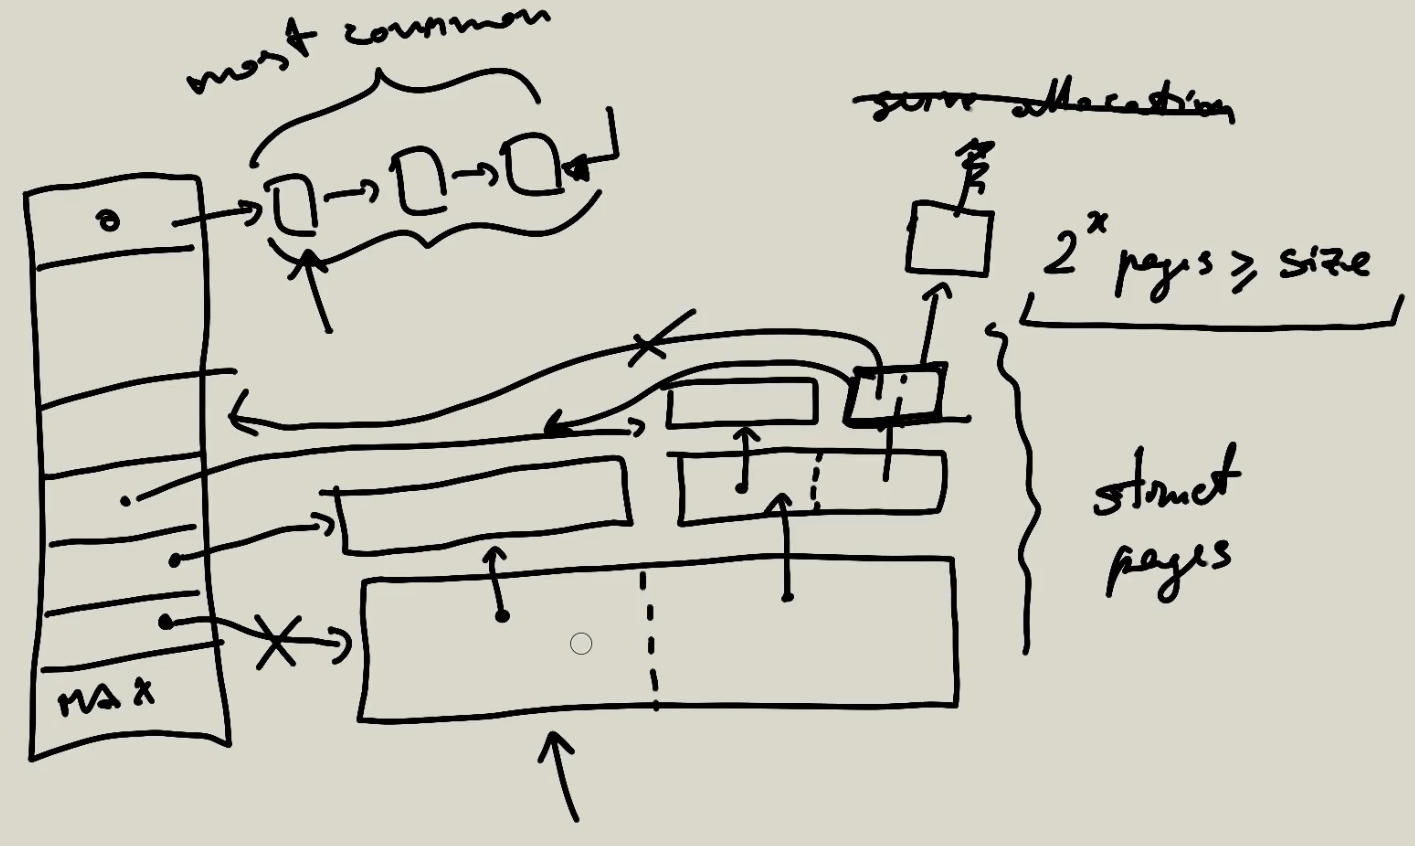 most common
allocation
0
2^x pages ≥ size
struct
pages
MAX